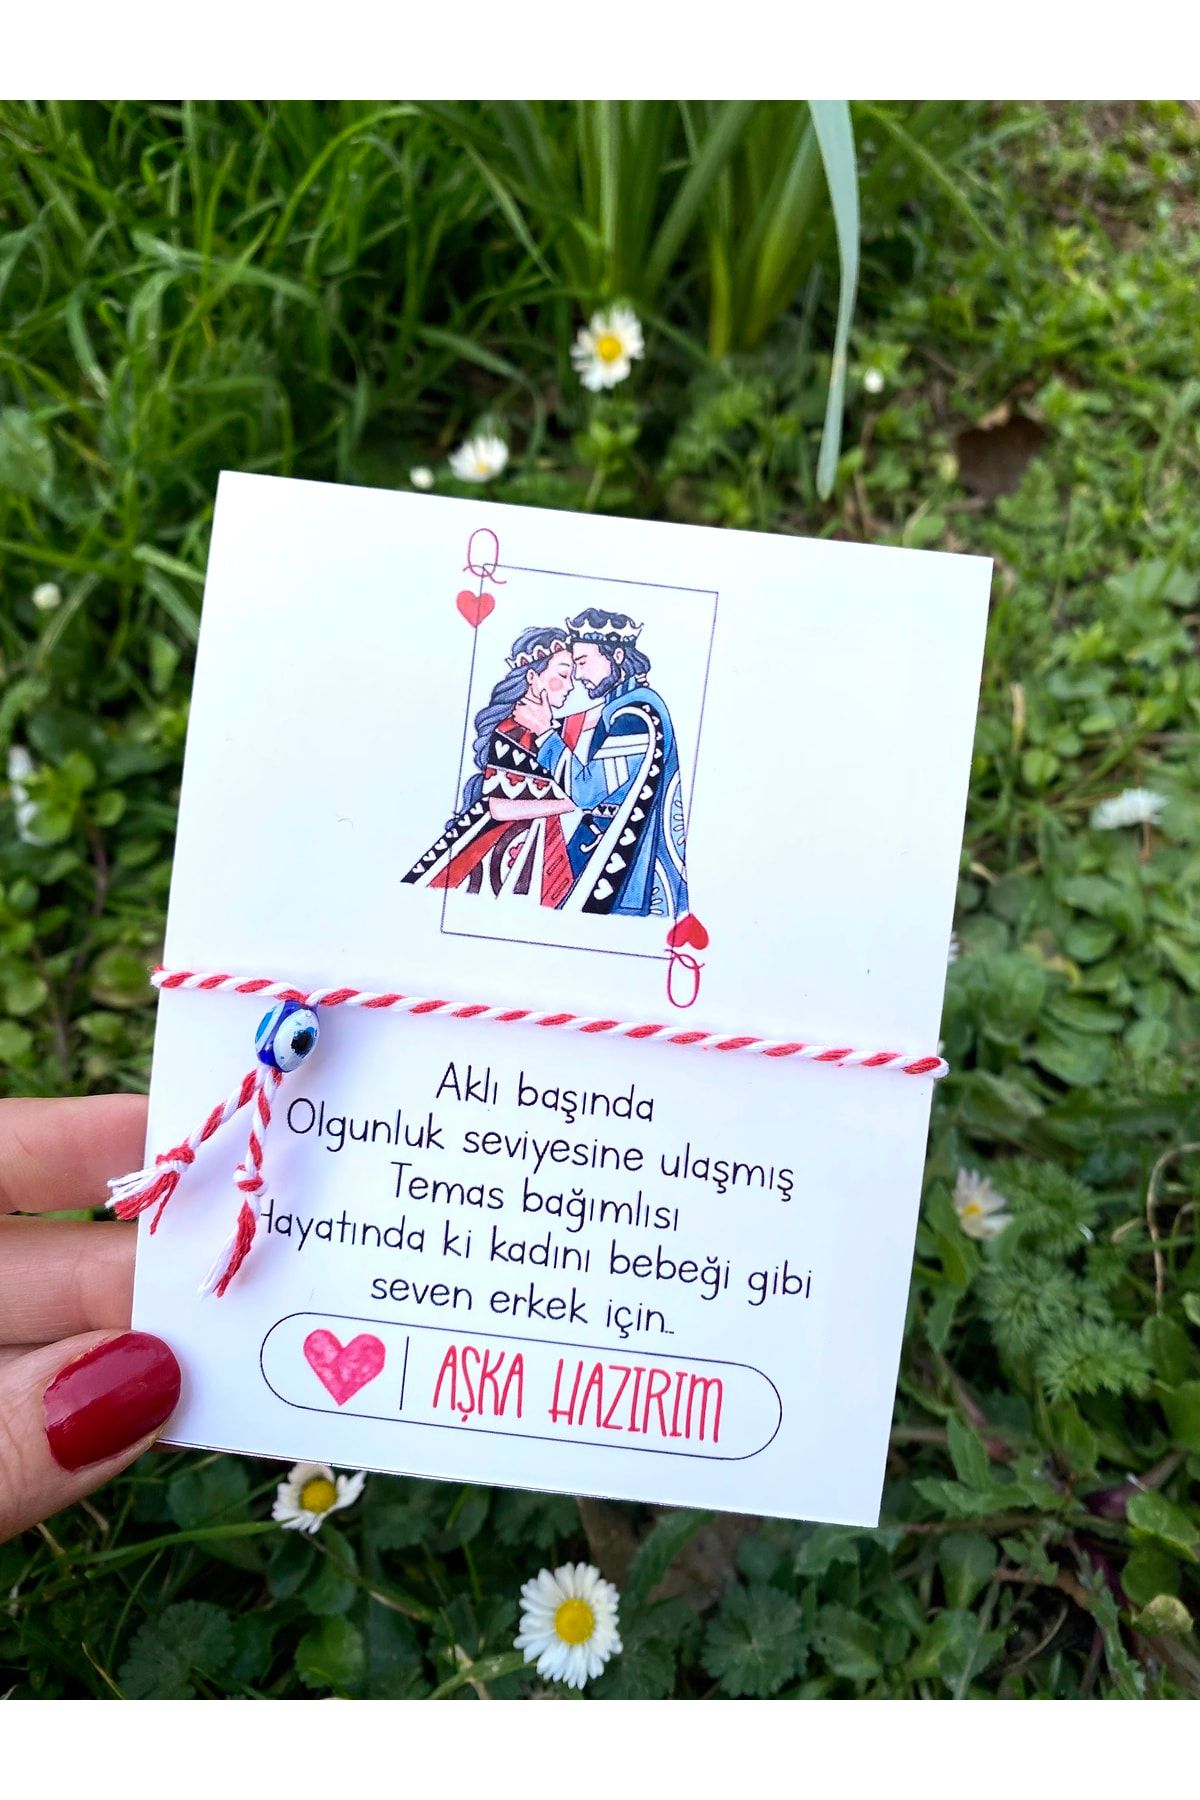 Q
Aklı başında
Olgunluk seviyesine ulaşmış
Temas bağımlısı
Hayatında ki kadını bebeği gibi
seven erkek için..
AŞKA HAZIRIM
Q